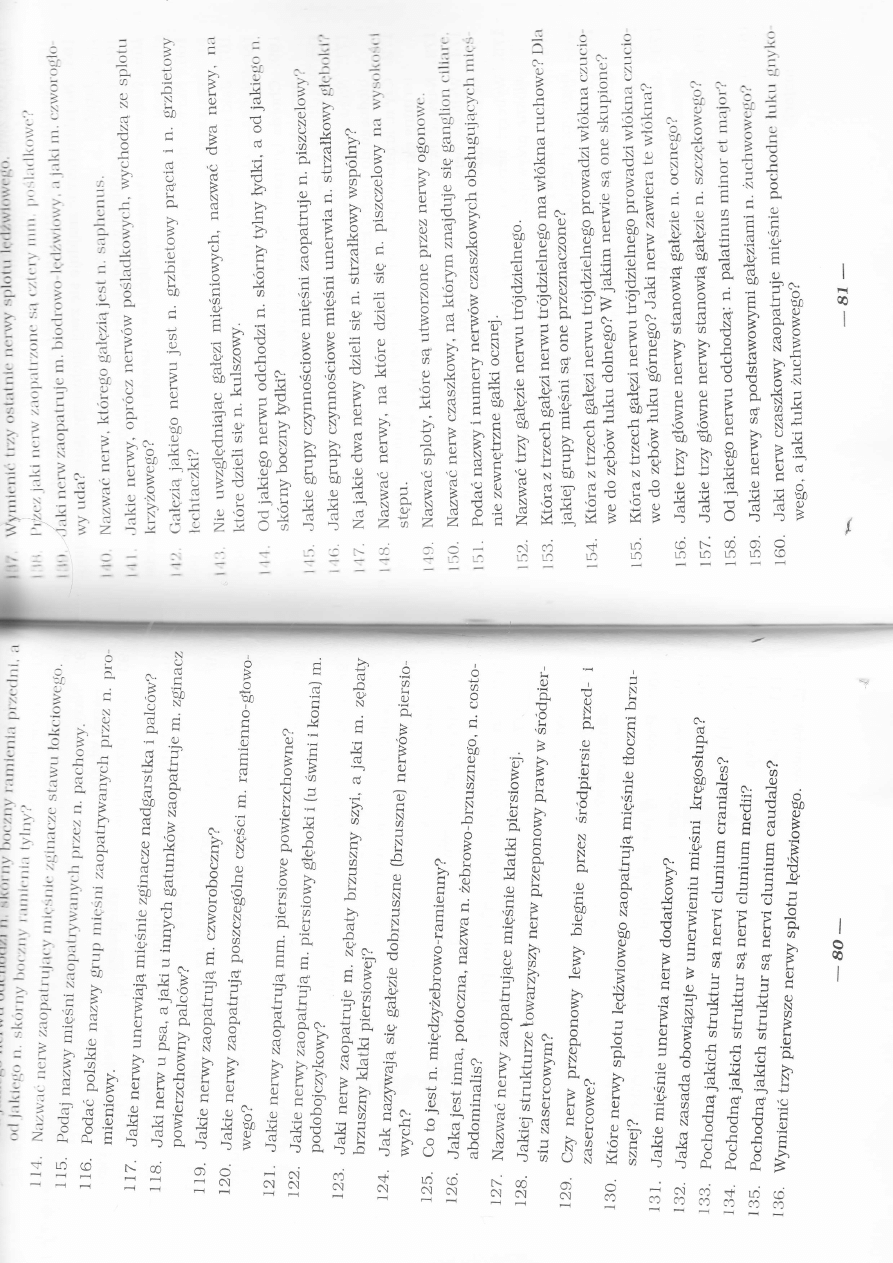 od jakiego n. skórny boczny ramienia tylny?
114. Nazwać nerw zaopatrujący mięśnie zginacze stawu łokciowego.
115. Podaj nazwy mięśni zaopatrywanych przez n. pachowy.
116. Podać polskie nazwy grup mięśni zaopatrywanych przez n. pro-
mieniowy.
117. Jakie nerwy unerwiają mięśnie zginacze nadgarstka i palców?
118. Jaki nerw u psa, a jaki u innych gatunków zaopatruje m. zginacz
powierzchowny palców?
119. Jakie nerwy zaopatrują m. czworoboczny?
120. Jakie nerwy zaopatrują poszczególne części m. ramienno-głowo-
wego?
121. Jakie nerwy zaopatrują mm. piersiowe powierzchowne?
122. Jakie nerwy zaopatrują m. piersiowy głęboki i (u świni i konia) m.
podobojczykowy?
123. Jaki nerw zaopatruje m. zębaty brzuszny szyi, a jaki m. zębaty
brzuszny klatki piersiowej?
124. Jak nazywają się gałęzie dobrzuszne (brzuszne) nerwów piersio-
wych?
125. Co to jest n. międzyżebrowo-ramienny?
126. Jaka jest inna, potoczna, nazwa n. żebrowo-brzusznego, n. costo-
abdominalis?
127. Nazwać nerwy zaopatrujące mięśnie klatki piersiowej.
128. Jakiej strukturze towarzyszy nerw przeponowy prawy w śródpier-
siu zasercowym?
129. Czy nerw przeponowy lewy biegnie przez śródpiersie przed- i
zasercowe?
130. Które nerwy splotu lędźwiowego zaopatrują mięśnie tłoczni brzu-
sznej?
131. Jakie mięśnie unerwia nerw dodatkowy?
132. Jaka zasada obowiązuje w unerwieniu mięśni kręgosłupa?
133. Pochodną jakich struktur są nervi clunium craniales?
134. Pochodną jakich struktur są nervi clunium medii?
135. Pochodną jakich struktur są nervi clunium caudales?
136. Wymienić trzy pierwsze nerwy splotu lędźwiowego.
— 80 —
137. Wymienić trzy ostatnie nerwy splotu lędźwiowego.
138. Przez jaki nerw zaopatrzone są cztery mm. pośladkowe?
139. Jaki nerw zaopatruje m. biodrowo-lędźwiowy, a jaki m. czworogło-
wy uda?
140. Nazwać nerw, którego gałęzią jest n. saphenus.
141. Jakie nerwy, oprócz nerwów pośladkowych, wychodzą ze splotu
krzyżowego?
142. Gałęzią jakiego nerwu jest n. grzbietowy prącia i n. grzbietowy
łechtaczki?
143. Nie uwzględniając gałęzi mięśniowych, nazwać dwa nerwy, na
które dzieli się n. kulszowy.
144. Od jakiego nerwu odchodzi n. skórny tylny łydki, a od jakiego n.
skórny boczny łydki?
145. Jakie grupy czynnościowe mięśni zaopatruje n. piszczelowy?
146. Jakie grupy czynnościowe mięśni unerwia n. strzałkowy głęboki?
147. Na jakie dwa nerwy dzieli się n. strzałkowy wspólny?
148. Nazwać nerwy, na które dzieli się n. piszczelowy na wysokości
stępu.
149. Nazwać sploty, które są utworzone przez nerwy ogonowe.
150. Nazwać nerw czaszkowy, na którym znajduje się ganglion ciliare.
151. Podać nazwy i numery nerwów czaszkowych obsługujących mięś-
nie zewnętrzne gałki ocznej.
152. Nazwać trzy gałęzie nerwu trójdzielnego.
153. Która z trzech gałęzi nerwu trójdzielnego ma włókna ruchowe? Dla
jakiej grupy mięśni są one przeznaczone?
154. Która z trzech gałęzi nerwu trójdzielnego prowadzi włókna czucio-
we do zębów łuku dolnego? W jakim nerwie są one skupione?
155. Która z trzech gałęzi nerwu trójdzielnego prowadzi włókna czucio-
we do zębów łuku górnego? Jaki nerw zawiera te włókna?
156. Jakie trzy główne nerwy stanowią gałęzie n. ocznego?
157. Jakie trzy główne nerwy stanowią gałęzie n. szczękowego?
158. Od jakiego nerwu odchodzą: n. palatinus minor et major?
159. Jakie nerwy są podstawowymi gałęziami n. żuchwowego?
160. Jaki nerw czaszkowy zaopatruje mięśnie pochodne łuku gnyko-
wego, a jaki łuku żuchwowego?
— 81 —